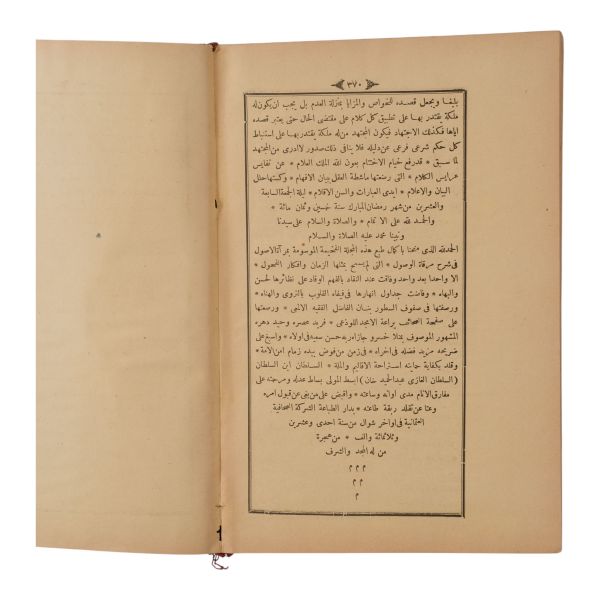 ٣٧٠
بليغا ويجعل قصده الخواص والمزايا بمنزلة العدم بل يجب ان يكون له
ملكة يقتدر بها على تطبيق كل كلام على مقتضى الحال حتى يعتبر قصده
اياها فكذلك الاجتهاد فيكون المجتهد من له ملكة يقتدر بها على استنباط
كل حكم شرعى فرعى عن دليله فلا ينافى ذلك صدور لا ادرى من المجتهد
لما سبق * قد رفع ختام الاختتام بعون الله الملك العلام * عن نفايس
عرايس الكلام * التى رصعتها ماشطة العقل ببيان الافهام * وكستها حلل
البيان والاعلام * ايدى العبارات والسن الاقلام * ليلة الجمعة السابعة
والعشرين من شهر رمضان المبارك سنة خمسين وثمان مائة *
والحمد لله على الاتمام * والصلاة والسلام على سيدنا
ونبينا محمد عليه الصلاة والسلام
الحمد لله الذى منحنا باكمال طبع هذه المجلة الفخيمة الموسومة بمرآة الاصول
فى شرح مرقاة الوصول * التى لم يسمح بمثلها الزمان وافكار الفحول *
الا واحدا بعد واحد وفاقت عند النقاد بالفهم الوقاد على نظائرها لحسن
والبهاء * وفاضت جداول انهارها فى فيفاء القلوب بالتروى والهناء *
ورصفتها فى صفوف السطور بنان الفاضل الفقيه الالمعى * ورصعتها
على صفحة الصحائف براعة الامجد اللوذعى * فريد عصره وحيد دهره
المشهور الموصوف بمنلا خسرو جازاه ربه حسن سعيه فى اولاه * واسبغ على
ضريحه مزيد فضله فى اخراه * فى زمن من فوض بيده زمام امن الامة *
وقلد بكفاية حمايته استراحة الاقاليم والملة * السلطان ابن السلطان
(السلطان الغازى عبد الحميد خان) ابسط المولى بساط عدله ومرحمته على
مفارق الانام مدى اوانه وساعته * واقبض على من بغى عن قبول امره
وعتا عن تقلد ربقة طاعته * بدار الطباعة الشركة الصحافية
العثمانية فى اواخر شوال من سنة احدى وعشرين
وثلاثمائة والف * من هجرة
من له المجد والشرف
م م م
م م
م